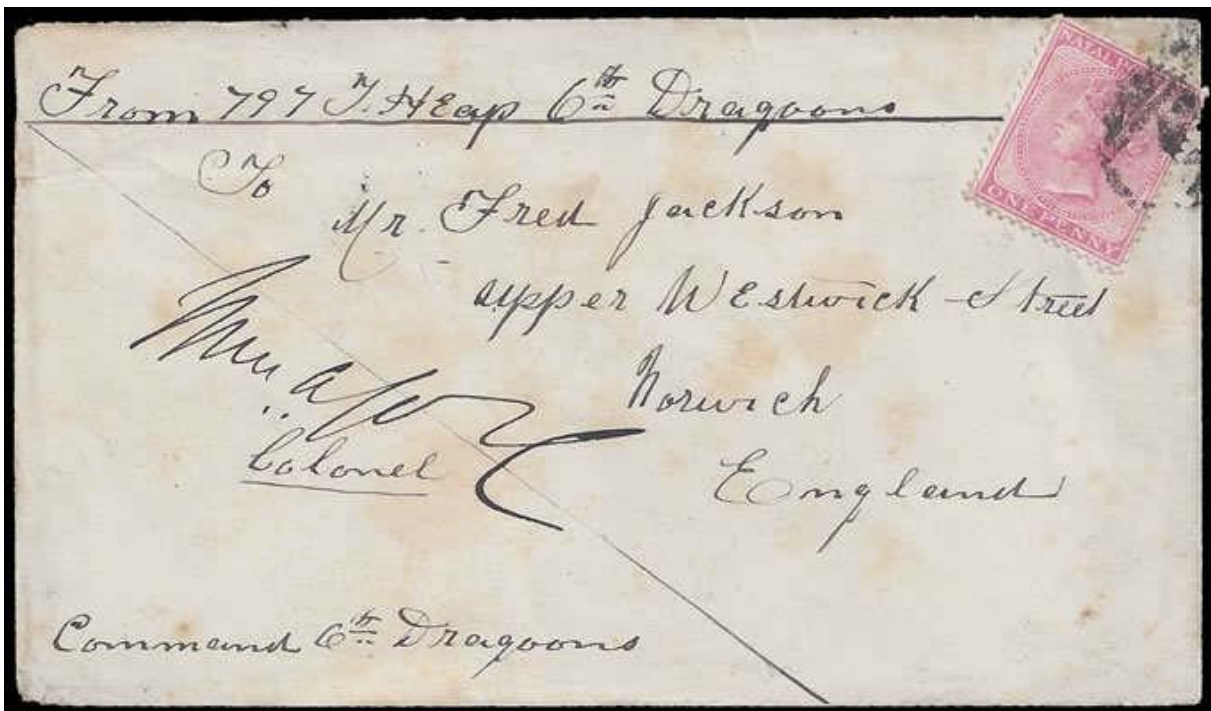 From 797 T. Heap 6th Dragoons
NATAL
ONE PENNY
To
Mr. Fred Jackson
upper Westwick Street
Norwich
England
Colonel
Command 6th Dragoons